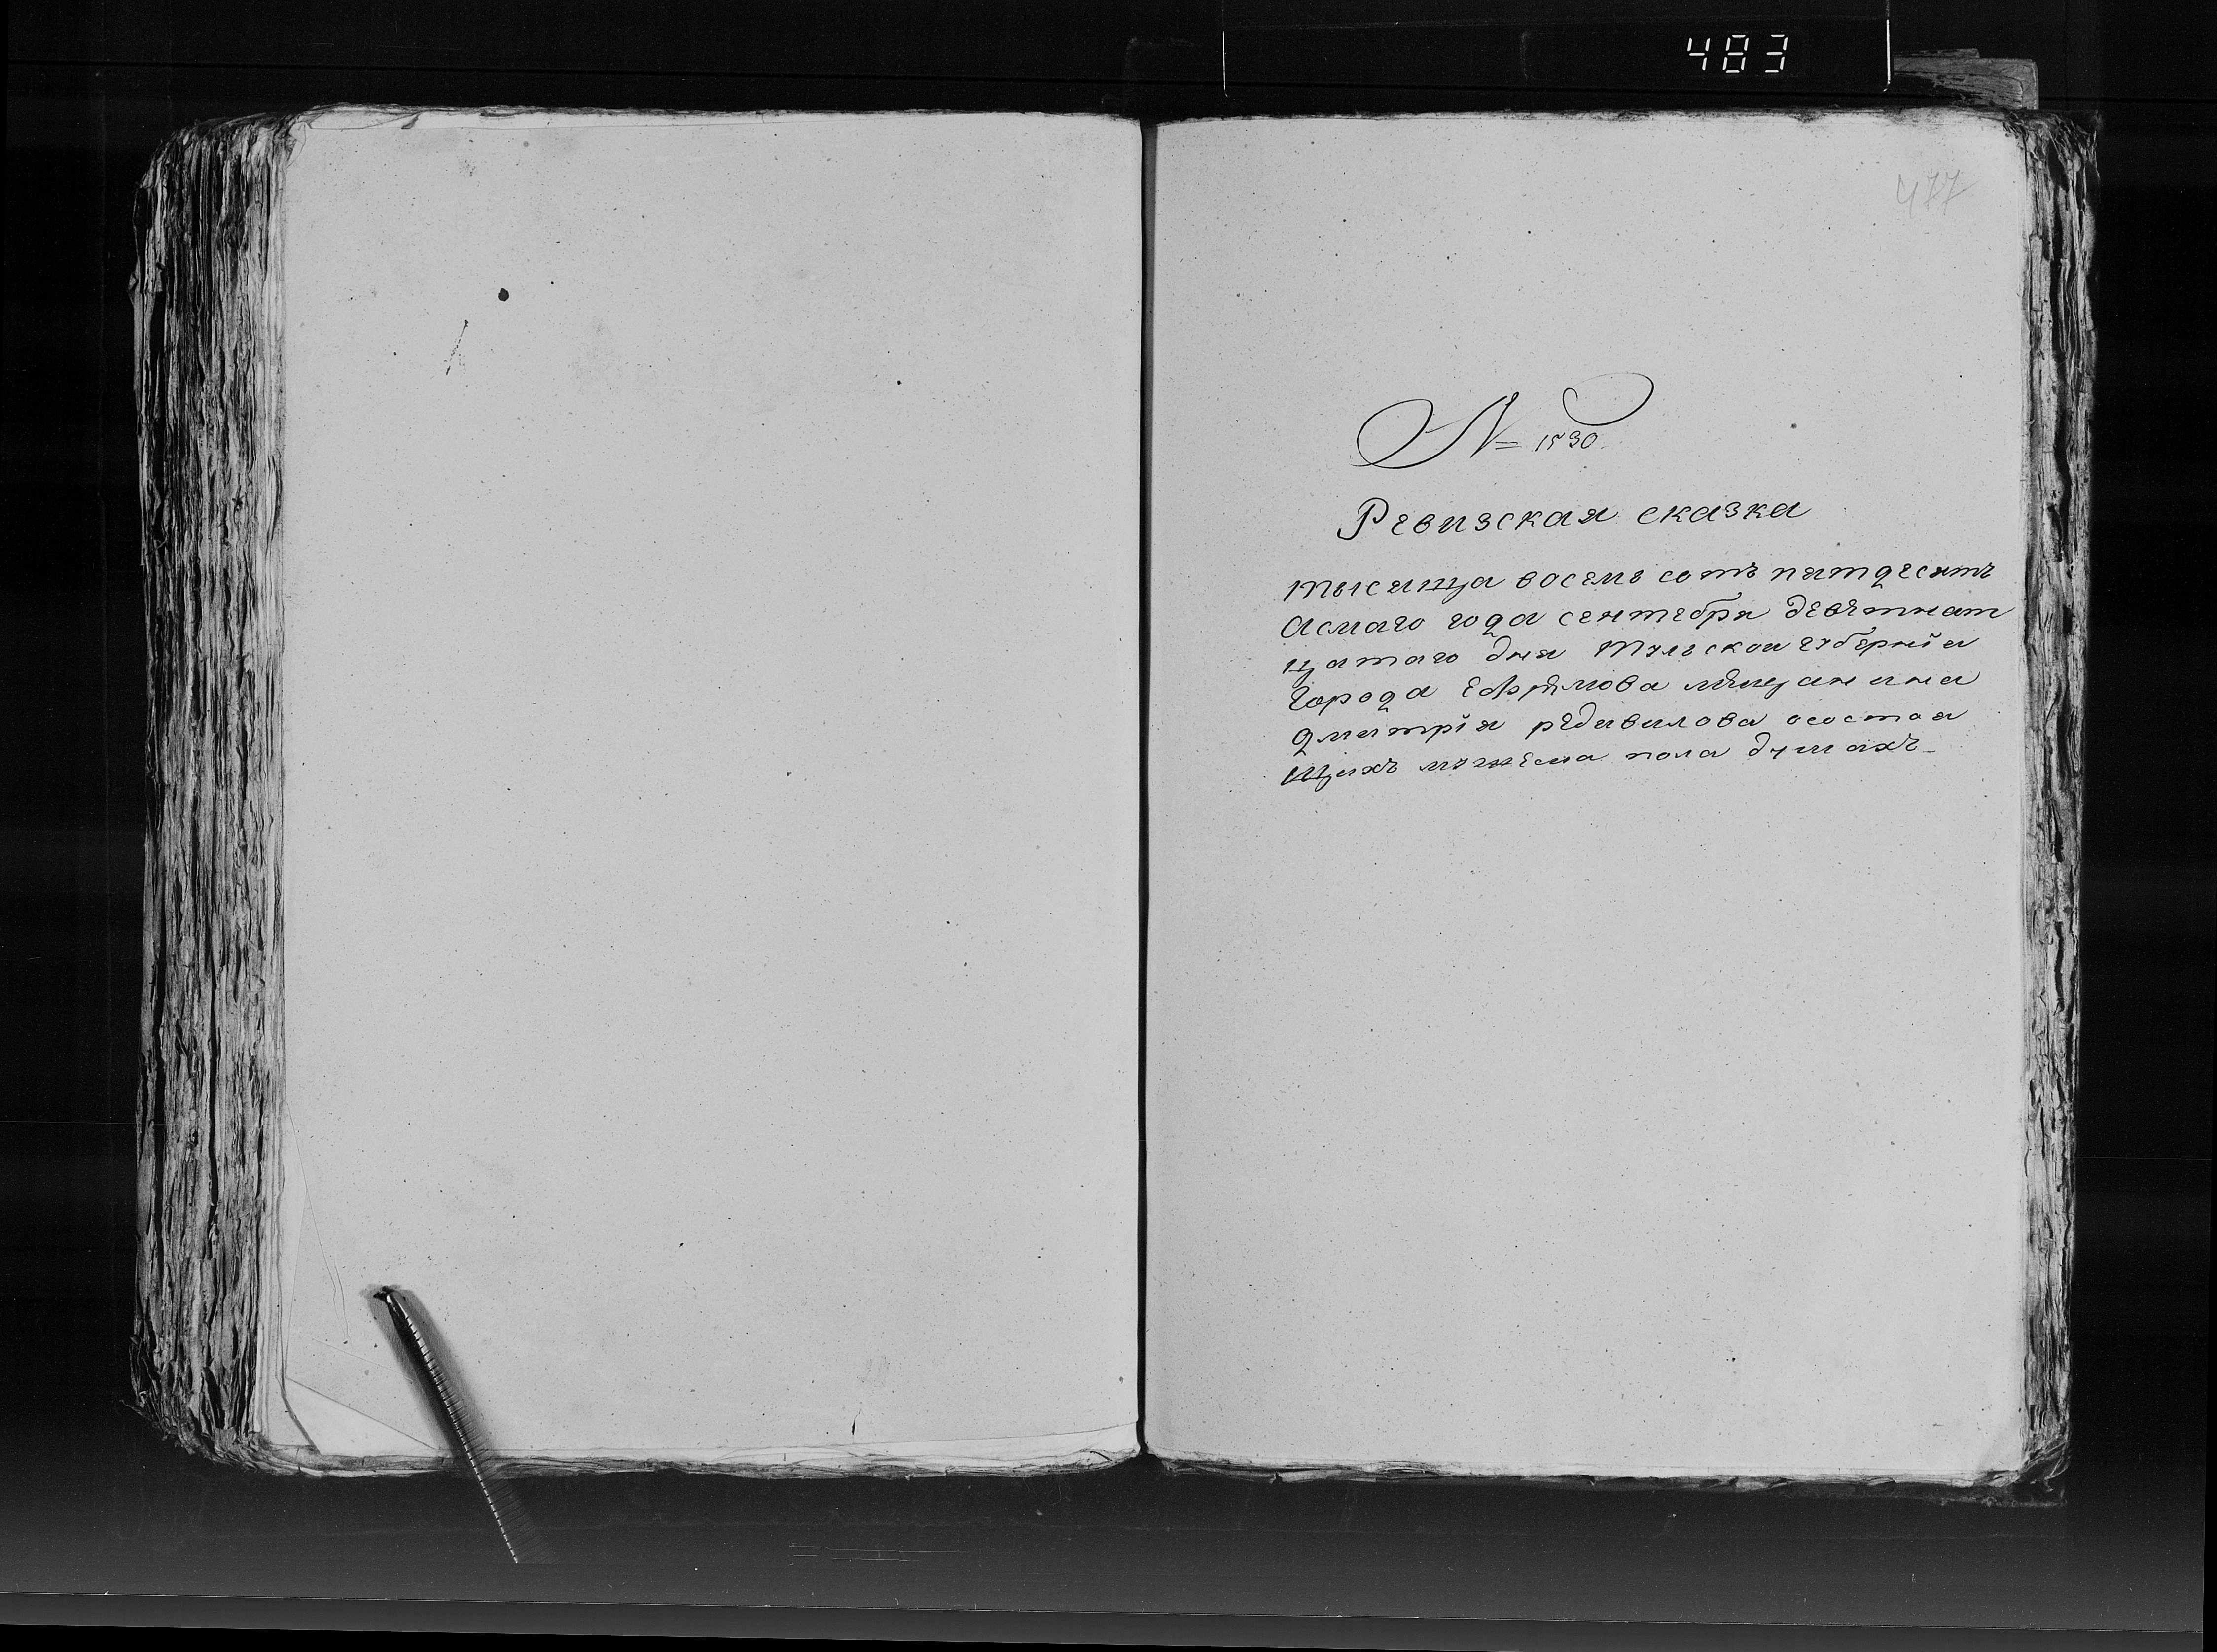 483
477
№ 1530.
Ревизская сказка
тысяща восемь сотъ пятдесятъ
асмаго года сентебря девятнат
цатаго дня Тульскои губерніи
города Ефрѣмова мѣщанина
Дмитрія редивилова осостоя
щихъ мужеска пола душахъ